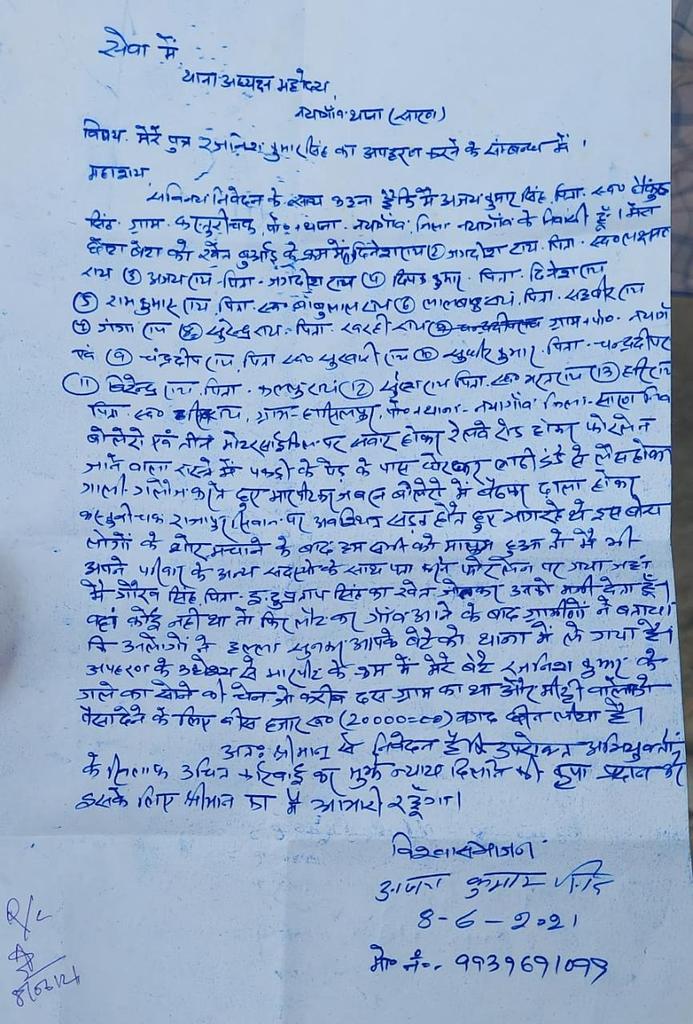 सेवा में
थाना अध्यक्ष महोदय,
नयागाँव थाना (सारण)
विषय - मेरे पुत्र रजनिश कुमार सिंह का अपहरण करने के सम्बन्ध में ।
महाशय
सविनय निवेदन के साथ कहना है कि मैं अजय कुमार सिंह, पिता - स्व०
सिंह, ग्राम - कस्तुरीचक, पो० + थाना - नयागाँव, जिला नयागाँव के निवासी हूँ । मेरा
बेटा को खेत बुआई के क्रम में दिनेश राय ② जगदीश राय - पिता - स्व० लक्ष्मण
राय ③ अजय राय - पिता - जगदीश राय ④ दिपक कुमार - पिता - दिनेश राय
⑤ राम कुमार राय, पिता - स्व० बाबुलाल राय ⑥ लालबाबु राय, पिता -
⑦ गंगा राय ⑧ सुरेन्द्र राय - पिता - राय ग्राम + पो० - नयागाँव
एवं ⑨ चंद्रदीप राय, पिता स्व० राय ⑩ सुधीर कुमार - पिता - चन्द्रदीप
⑪ बिरेन्द्र राय, पिता - राय ⑫ राय पिता - स्व० राय ⑬ हरि राय
पिता - स्व० राय, ग्राम - हासिलपुर, पो० + थाना - नयागाँव जिला - सारण
बोलेरो एवं तीन मोटरसाईकिल पर सवार होकर रेलवे रोड होकर फोरलेन
जाने वाला रास्ते में पकड़ी के पेड़ के पास घेरकर लाठी डंडे से लैस होकर
गाली - गलौज करते हुए मारपीट कर जबरन बोलेरो में बैठाकर दाला होकर
कस्तुरीचक राजापुर सिवान पर होते हुए भाग रहे थे इस बीच
लोगों के शोर मचाने के बाद हम सभी को मालुम हुआ तो मैं भी
अपने परिवार के अन्य सदस्यों के साथ पता करने फोरलेन पर गया जहाँ
मैं गौरव सिंह, पिता - इन्दु प्रताप सिंह का खेत जोतकर उनको मनी देता हूँ ।
वहां कोई नहीं था तो फिर लौटकर गाँव आने के बाद ग्रामीणों ने बताया
कि उनलोगों ने हल्ला सुनकर आपके बेटे को थाना में ले गया है ।
अपहरण के उद्देश्य से मारपीट के क्रम में मेरे बेटे रजनिश कुमार के
गले का सोने की चेन जो करीब दस ग्राम का था और मीट्टी वाले को
पैसा देने के लिए बीस हजार रू० (20000=00) नगद छीन लिया है ।
अतः श्रीमान् से निवेदन है कि उपरोक्त अभियुक्तों
के खिलाफ उचित कार्रवाई कर मुझे न्याय दिलाने की कृपा प्रदान करें
इसके लिए श्रीमान का मैं आभारी रहूँगा ।
विश्वासभाजन
अजय कुमार सिंह
8-6-2021
मो० नं० - 9939691099
R/c
8/06/21